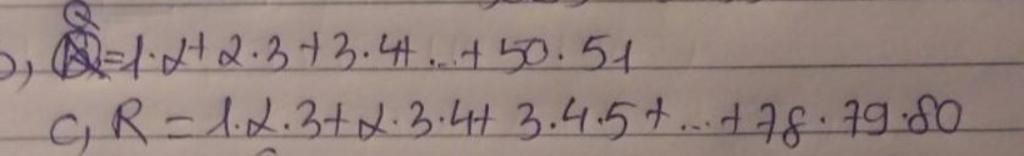 b, Q = 1.2+ 2.3+3.4+...+ 50.51
c, R = 1.2.3+ 2.3.4+ 3.4.5+...+78.79.80